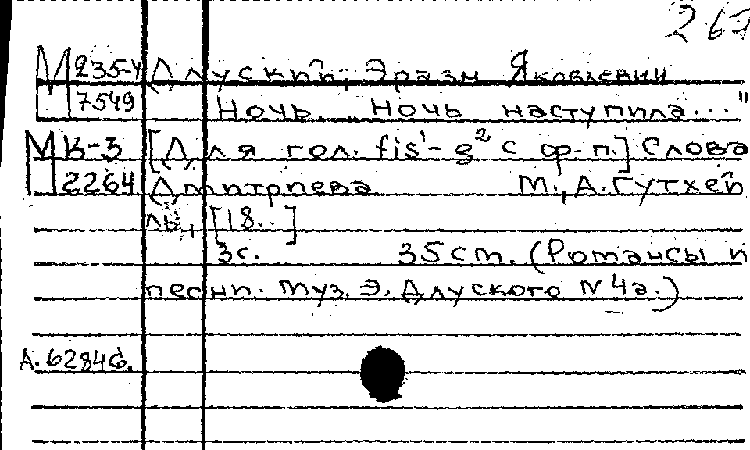 267
М 235-4 Длуский, Эразм Яковлевич
7549 Ночь. "Ночь наступила..."
М К-3 [Для гол. fis¹- g² с ф-п.] Слова
2264 Дмитриева М., А. Гутхей
ль, [18..]
3с. 35 см. (Романсы и
песни. Муз. Э. Длуского №4а.)
А. 62846.